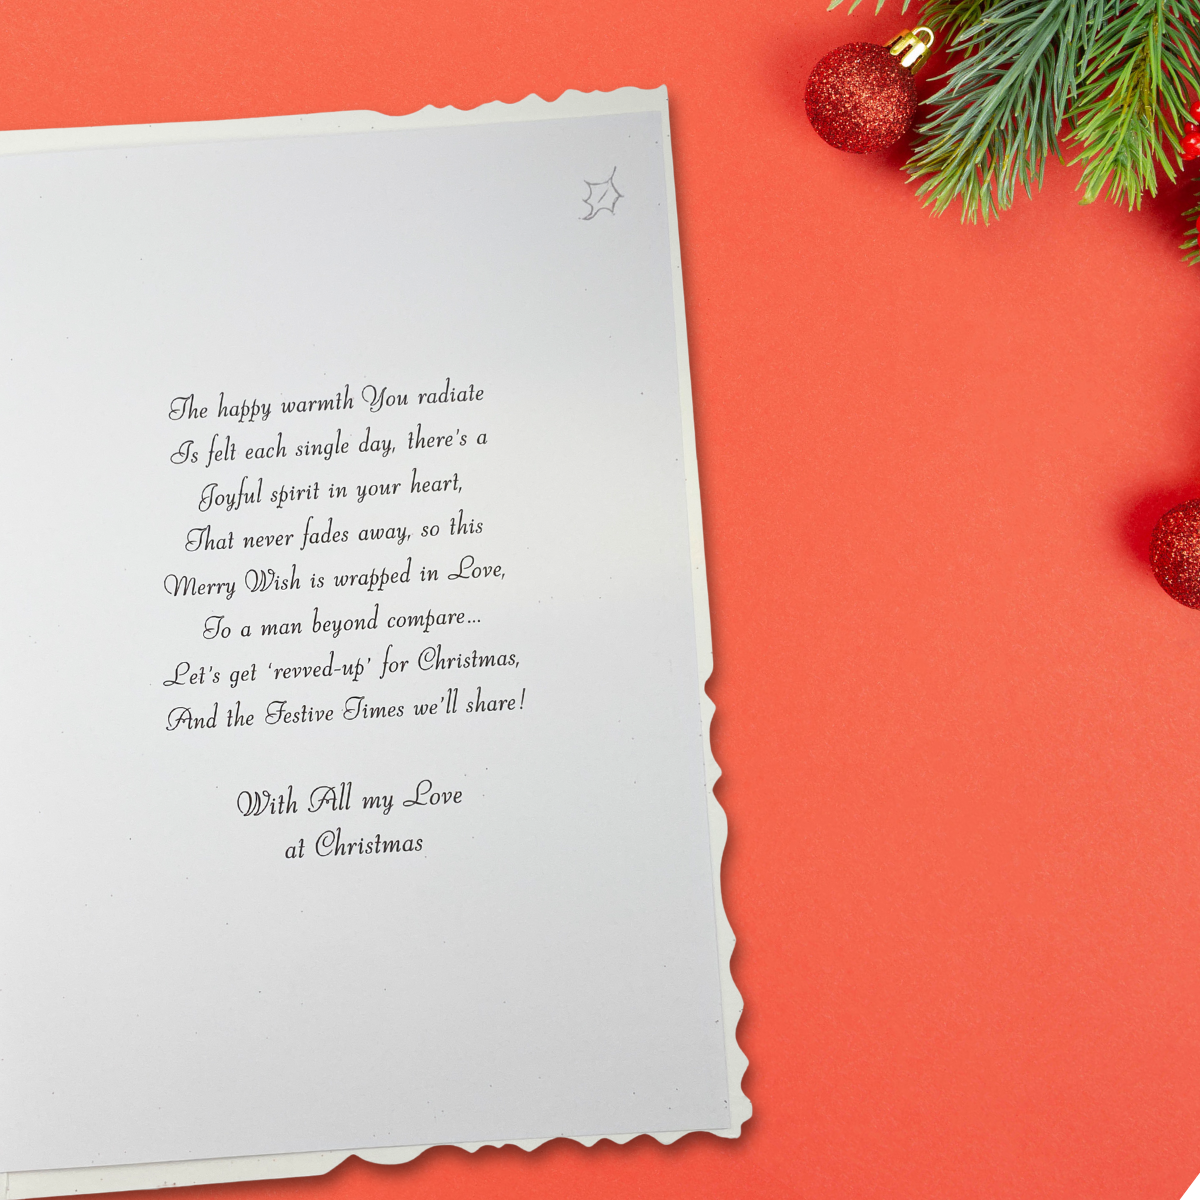 The happy warmth You radiate
Is felt each single day, there's a
Joyful spirit in your heart,
That never fades away, so this
Merry Wish is wrapped in Love,
To a man beyond compare...
Let's get ‘revved-up’ for Christmas,
And the Festive Times we'll share!
With All my Love
at Christmas